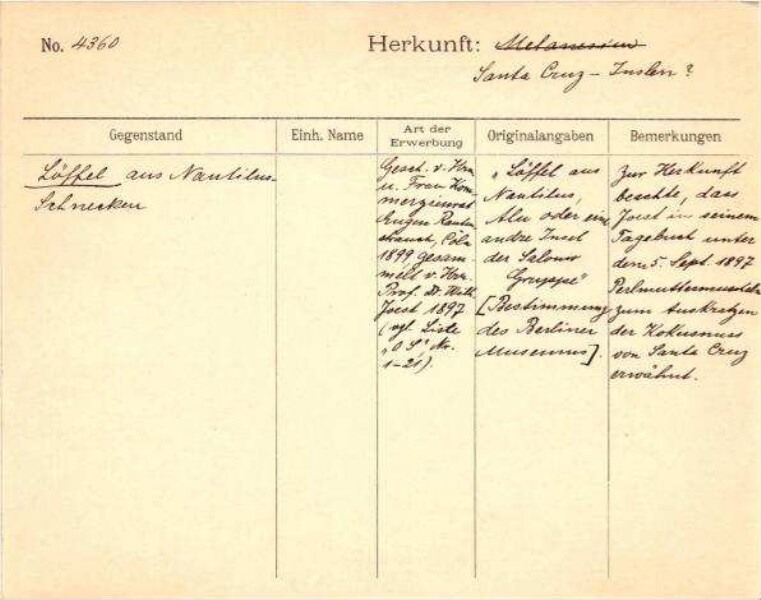 No. 4360
Herkunft: Melanesien
Santa Cruz - Inseln?
Gegenstand
Einh. Name
Art der Erwerbung
Originalangaben
Bemerkungen
Löffel aus Nautilus-
Schnecken
Gesch. v. Hrn
u. Frau Kom-
merzienrat
Eugen Rauten-
strauch, Cöln
1899, gesam-
melt v. Hrn.
Prof. Dr. Wilh.
Joest 1897
(vgl. Liste
„O S" Nr.
1-21).
„Löffel aus
Nautilus,
Alu oder eine
andre Insel
der Salomo
Gruppe"
[Bestimmung
des Berliner
Museums].
Zur Herkunft
beachte, dass
Joest in seinem
Tagebuch unter
dem 5. Sept. 1897
Perlmuttermuscheln
zum Auskratzen
der Kokusnuss
von Santa Cruz
erwähnt.